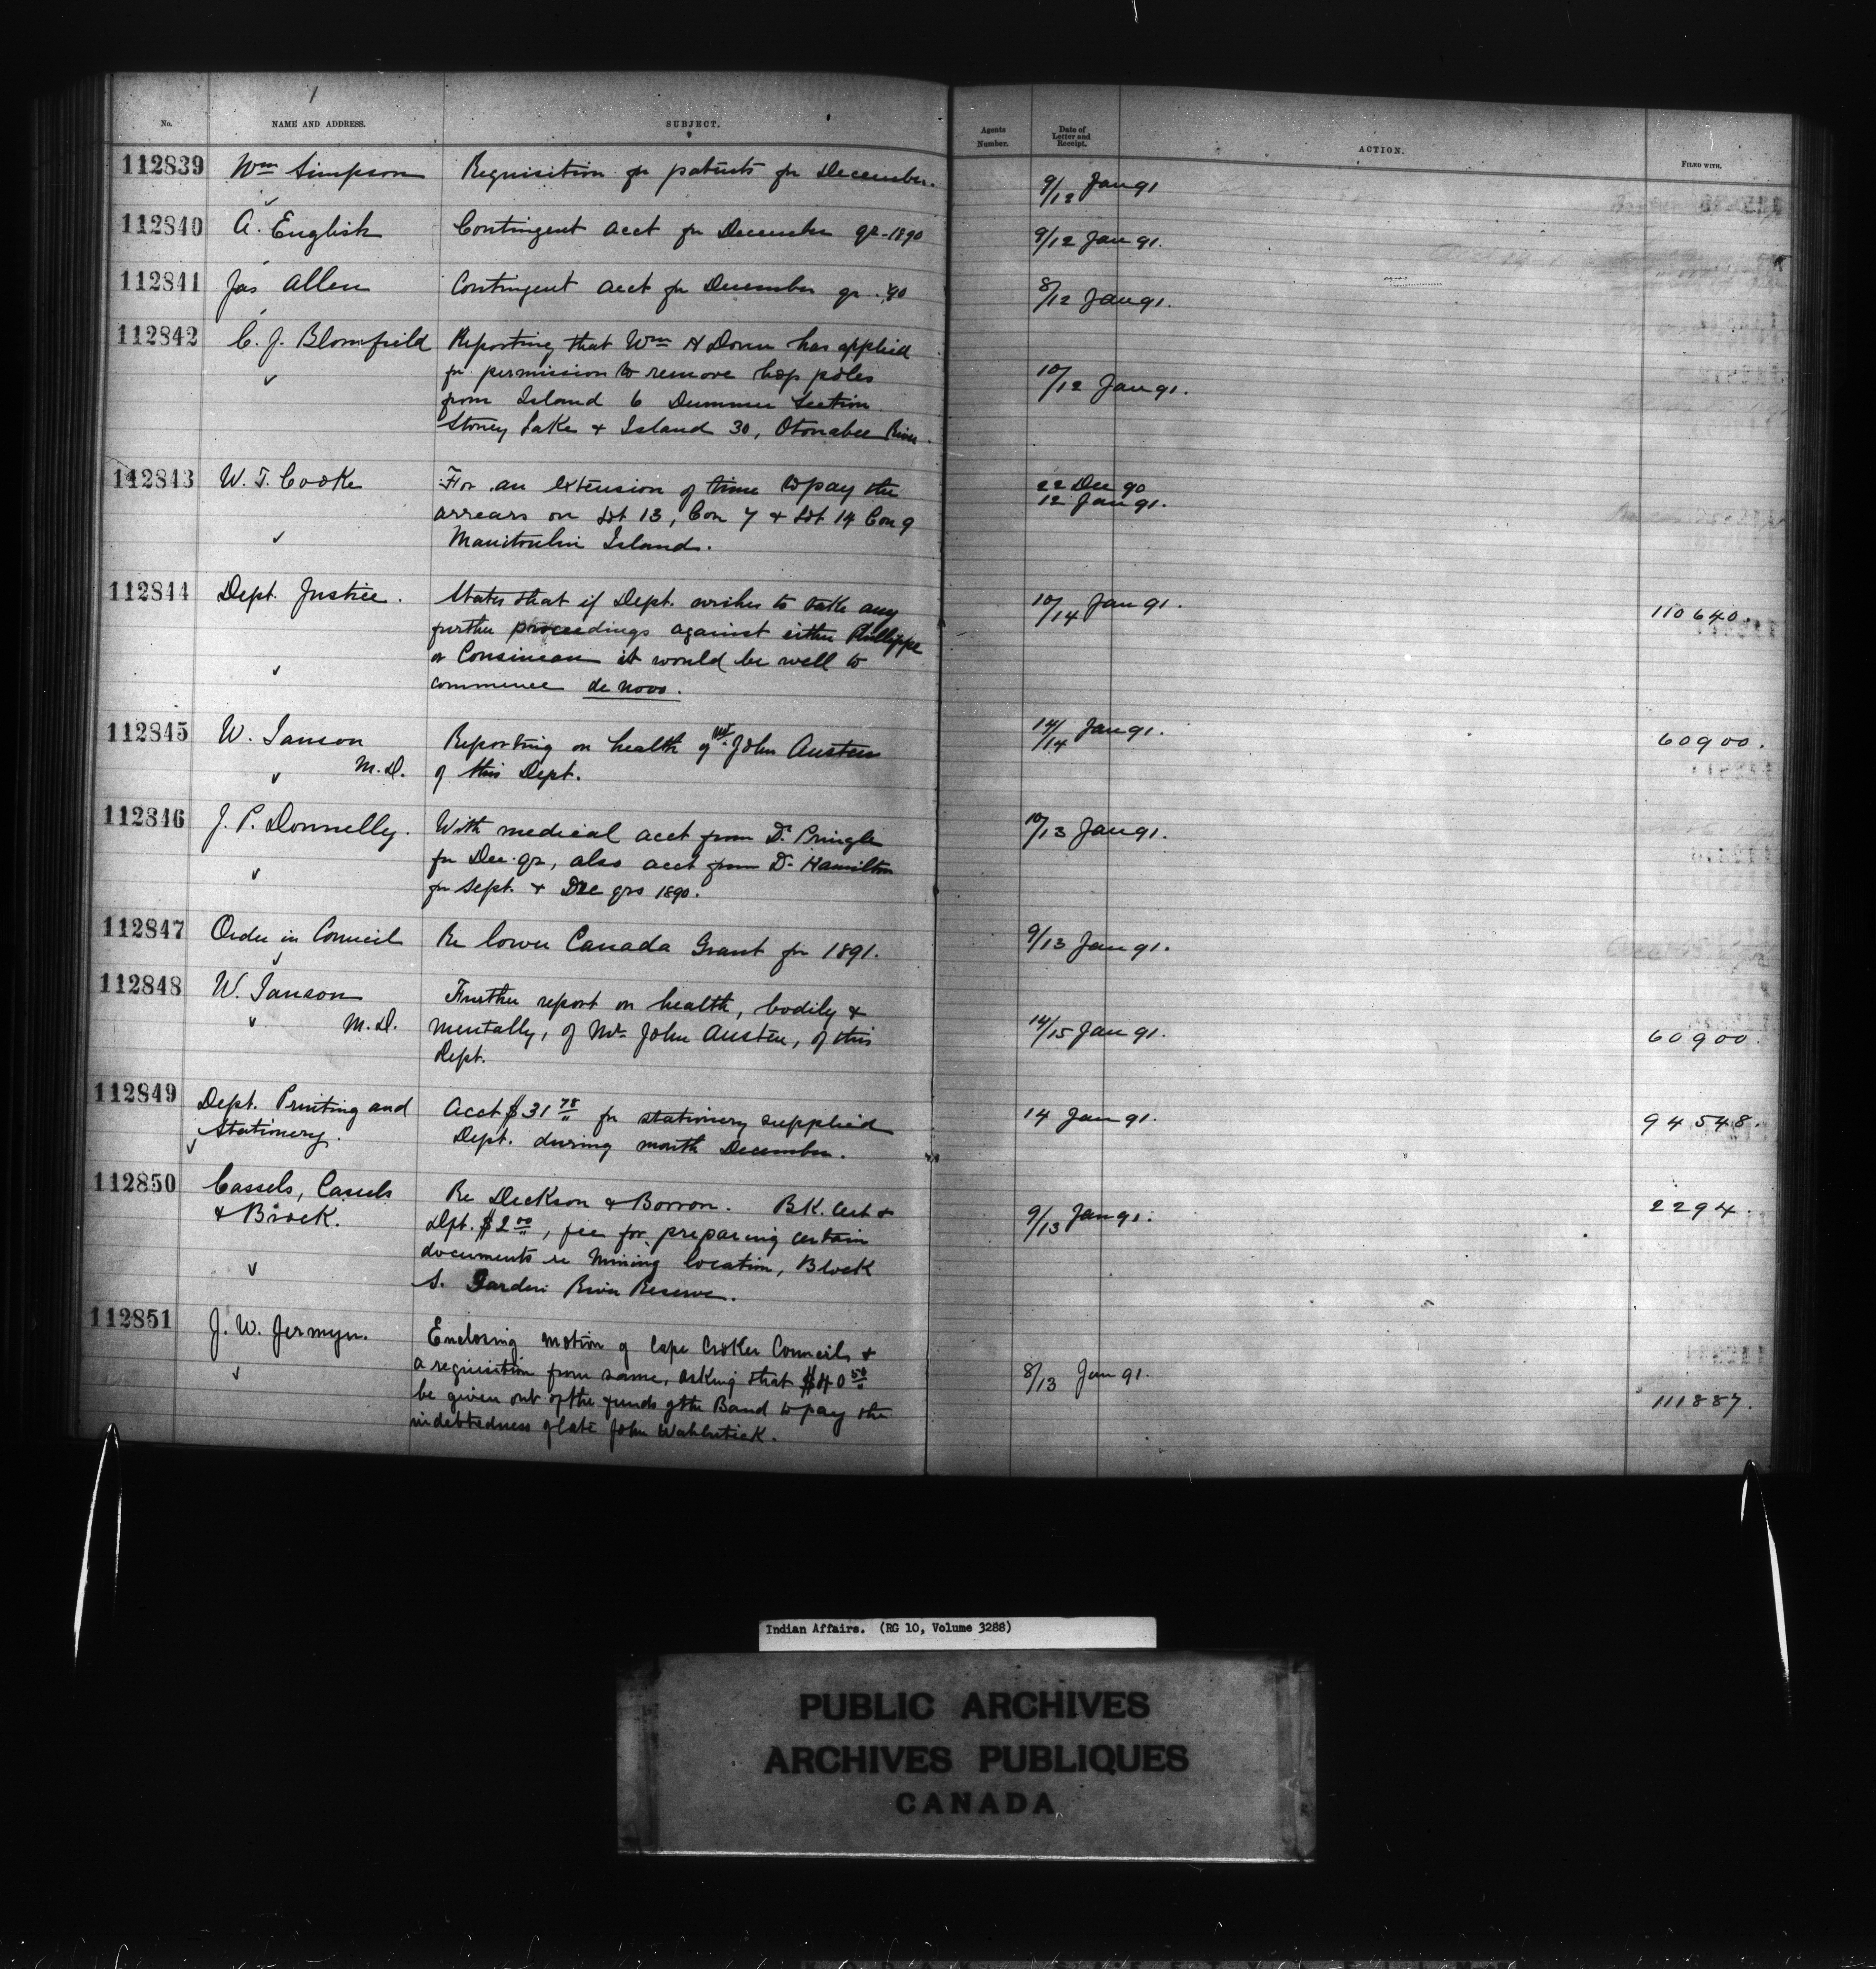 No.
NAME AND ADDRESS.
SUBJECT.
Agents Number.
Date of Letter and Receipt.
ACTION.
FILED WITH.
112839 Wm Simpson Requisition for patents for December. 9/12 Jan 91
112840 A. English Contingent acct for December qr-1890 9/12 Jan 91.
112841 Jas Allen Contingent acct for December qr. '90 8/12 Jan 91.
112842 C. J. Blomfield Reporting that Wm H has applied
for permission to remove hop poles 10/12 Jan 91.
from Island 6 Dummer Section
Stoney Lake & Island 30, Otonabee River.
112843 W. T. Cooke For an extension of time to pay the 22 Dec 90
arrears on Lot 13, Con 7 & Lot 14 Con 9 12 Jan 91.
Manitoulin Island.
112844 Dept. Justice. States that if Dept. wishes to take any 10/14 Jan 91. 110640.
further proceedings against either Phillippe
or Consineau it would be well to
commence de novo.
112845 W. Ianson Reporting on health of Mr. John Austen 14/14 Jan 91. 60900.
M.D. of this Dept.
112846 J. P. Donnelly. With medical acct from Dr. Pringle 10/13 Jan 91.
for Dec. qr, also acct from Dr. Hamilton
for Sept. & Dec qrs 1890.
112847 Order in Council Re Lower Canada Grant for 1891. 9/13 Jan 91.
112848 W. Ianson Further report on health, bodily &
M.D. mentally, of Mr. John Austen, of this 14/15 Jan 91. 60900.
Dept.
112849 Dept. Printing and Acct $31 78/" for stationery supplied 14 Jan 91. 94548.
Stationery. Dept. during month December.
112850 Cassels, Cassels Re Dickson & Borron. Bk. Cert & 2294.
& Brock. Dpt. $2 00/", fee for preparing certain 9/13 Jan 91.
documents re Mining location, Block
S. Garden River Reserve.
112851 J. W. Jermyn. Enclosing motion of Cape Croker Councils &
a requisition from same, asking that $40 50/" 8/13 Jan 91.
be given out of the funds of the Band to pay the 111887.
indebtedness of late John
Indian Affairs. (RG 10, Volume 3288)
PUBLIC ARCHIVES
ARCHIVES PUBLIQUES
CANADA